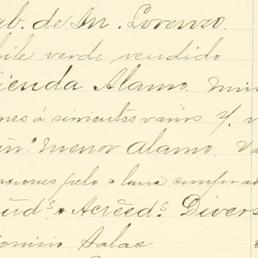 ab. de Sn. Lorenzo.
hile verde vendido
ienda Alamo.
nes á simientes varios p/.
Menor Alamo.
ciones pelo y lana comprad
eud.s y Acréed.s Divers
ionisio Salas